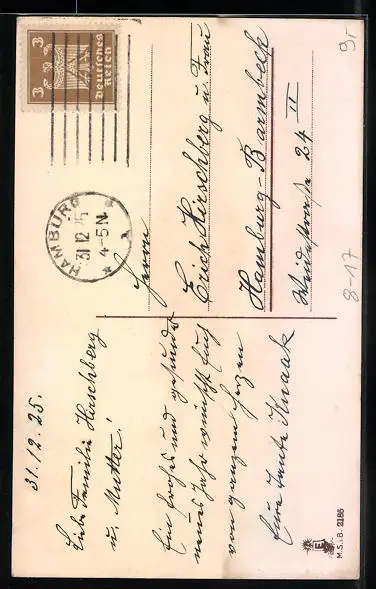 31.12.25.
Liebe Familie Hirschberg
u. Mutter!
Ein frohes und gesundes
neues Jahr wünscht Euch
von ganzem Herzen
Eure Knaak
3 3
Deutsches
Reich
HAMBURG
31.12.25
4-5N
Herrn
Erich Hirschberg u. Frau
Hamburg-Barmbeck
24 II
M.S.i.B. 2186
8-17